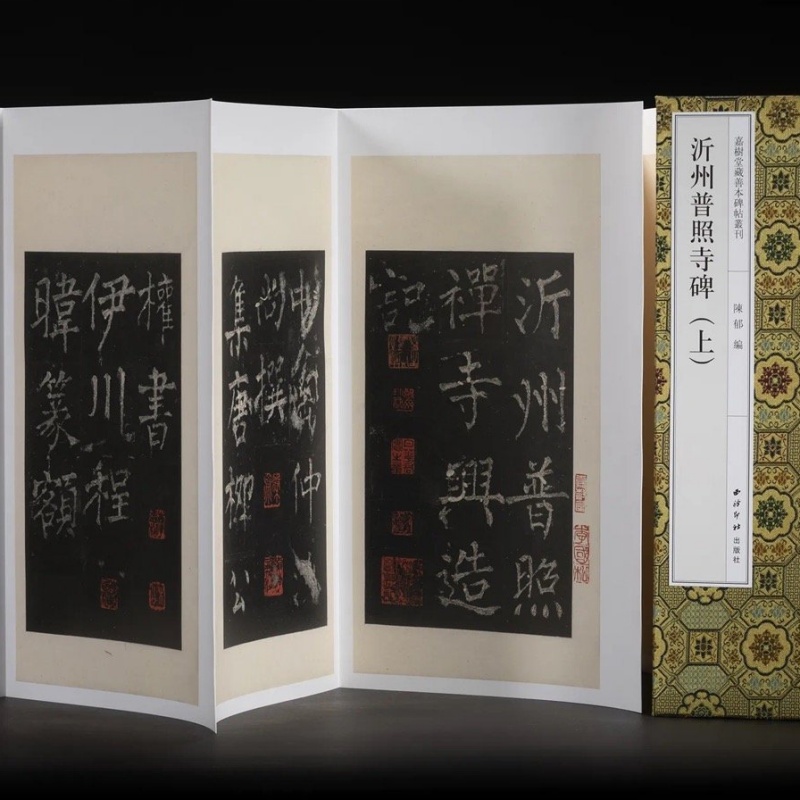 嘉樹堂藏善本碑帖叢刊
陳郁 編
沂州普照寺碑（上）
西泠印社出版社
沂州普照
禪寺興造
記
仲
尚撰
集唐柳公
權書
伊川程
暐篆額